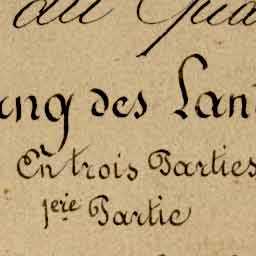 au Qua
ang des Lan
En trois Parties
1ère Partie